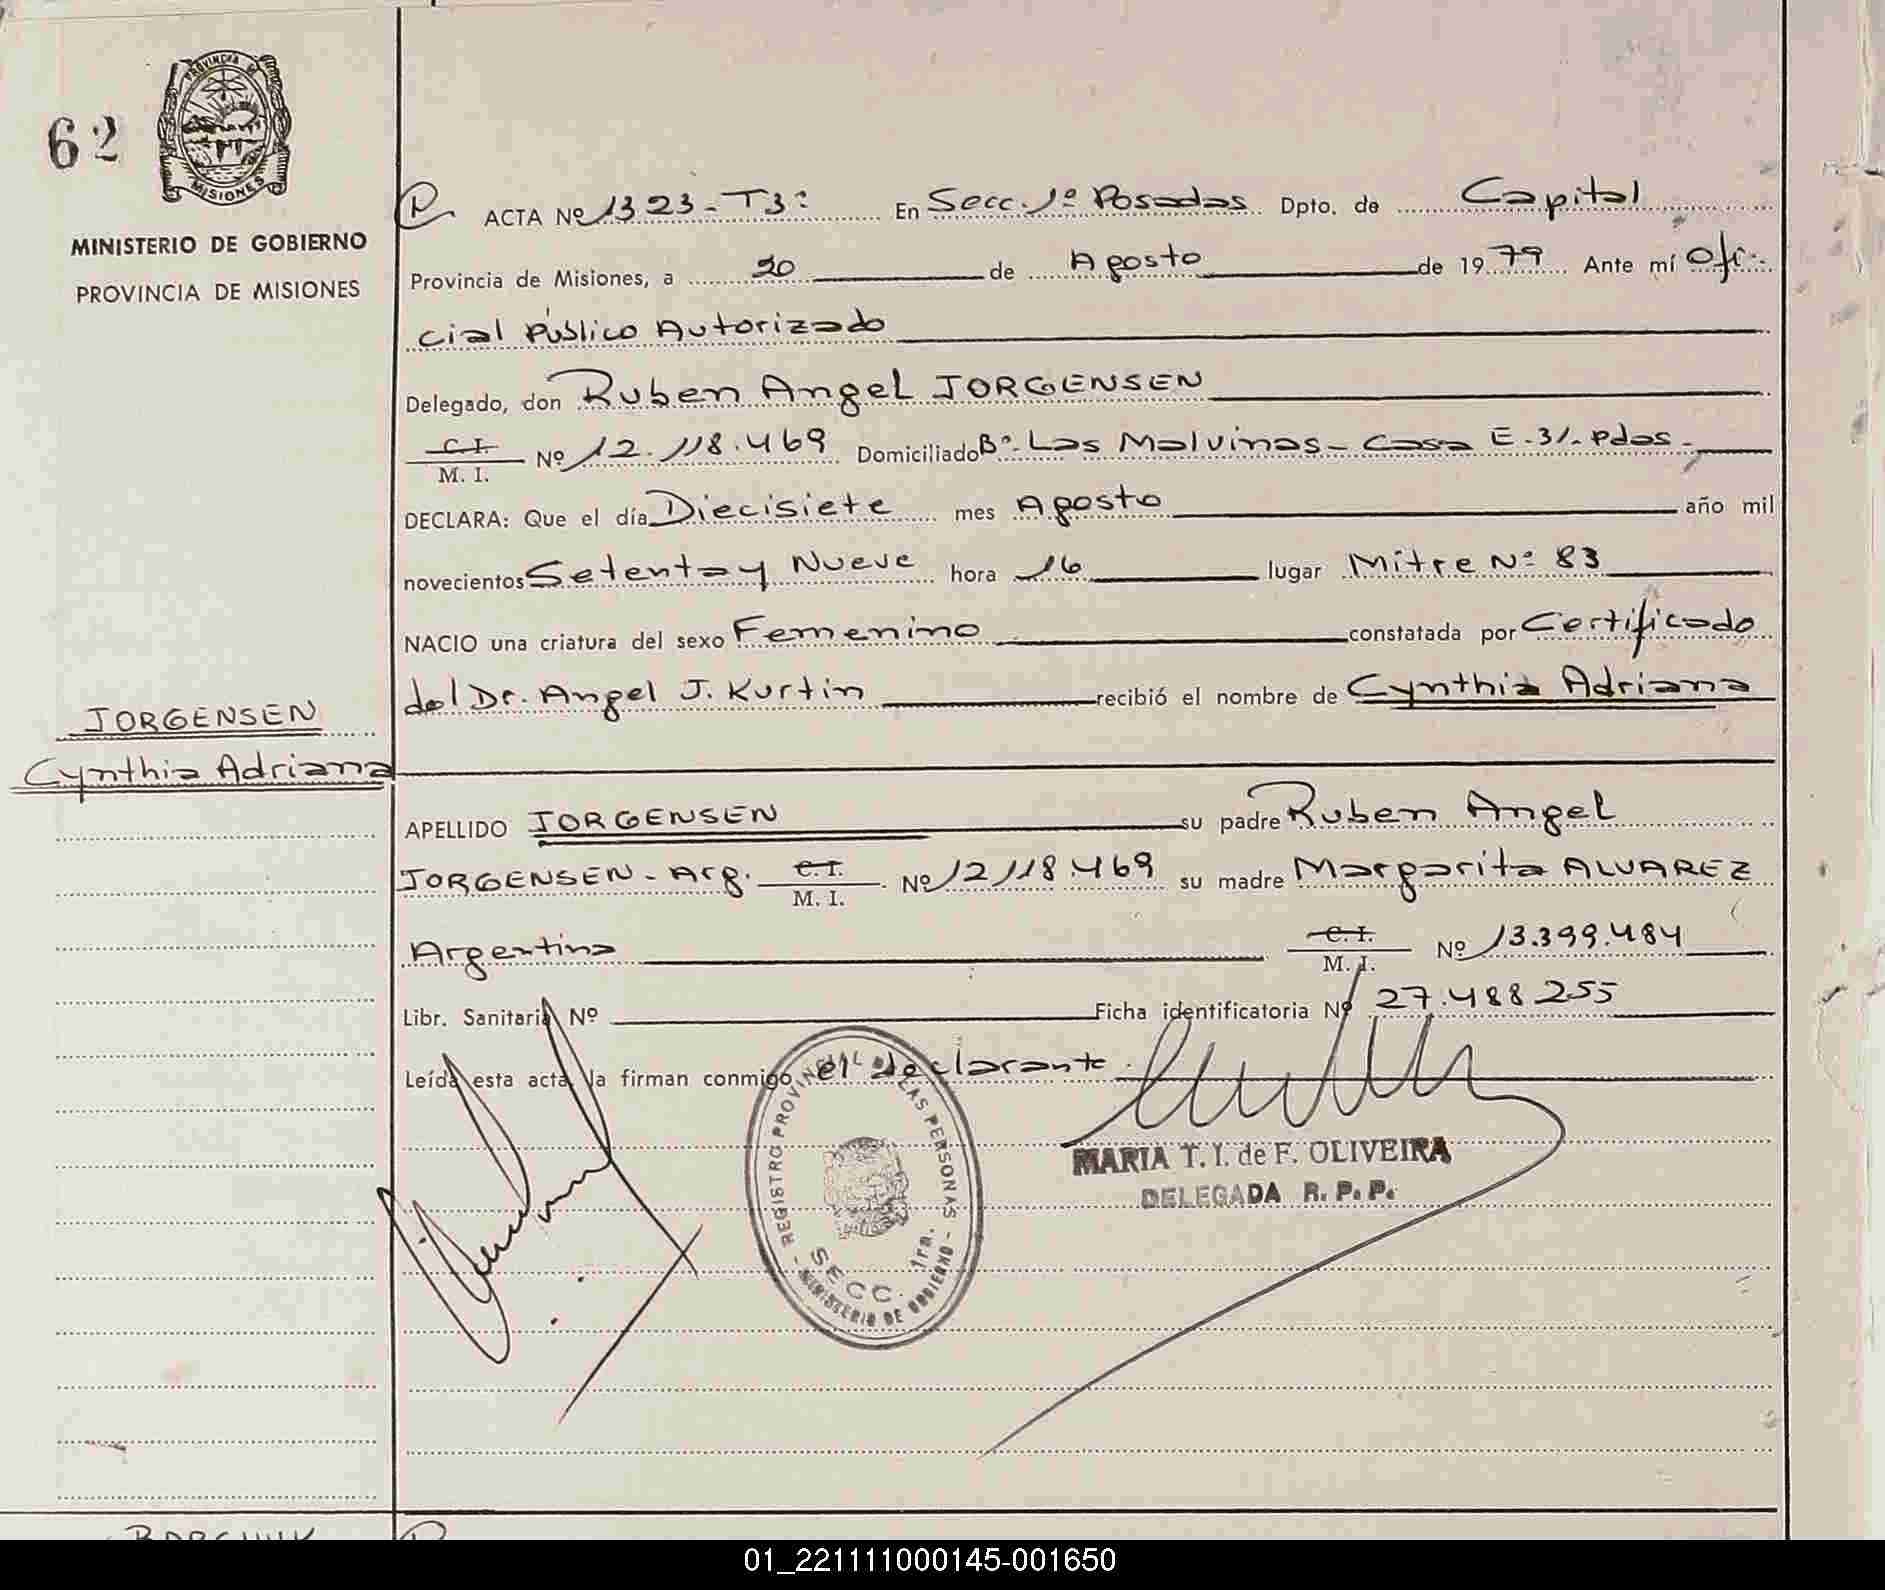 62
PROVINCIA DE
MISIONES
MINISTERIO DE GOBIERNO
PROVINCIA DE MISIONES
ACTA Nº 1323-T3º En Secc. 1º Posadas Dpto. de Capital
Provincia de Misiones, a 20 de Agosto de 1979 Ante mí Ofi-
cial Público Autorizado
Delegado, don Ruben Angel JORGENSEN
C.I.
M. I. Nº 12.118.469 Domiciliado Bº. Las Malvinas - Casa E. 31. Pdas.
DECLARA: Que el día Diecisiete mes Agosto año mil
novecientos Setenta y Nueve hora 16 lugar Mitre Nº 83
NACIO una criatura del sexo Femenino constatada por Certificado
del Dr. Angel J. Kurtin recibió el nombre de Cynthia Adriana
JORGENSEN
Cynthia Adriana
APELLIDO JORGENSEN su padre Ruben Angel
JORGENSEN - Arg. C.I. M. I. Nº 12118.469 su madre Margarita ALVAREZ
Argentina C.I. M. I. Nº 13.399.484
Libr. Sanitaria Nº Ficha identificatoria Nº 27.488255
Leída esta acta, la firman conmigo el declarante.
REGISTRO PROVINCIAL DE LAS PERSONAS
SECC. 1ra.
MINISTERIO DE GOBIERNO
MARIA T. I. de F. OLIVEIRA
DELEGADA R. P. P.
01_221111000145-001650